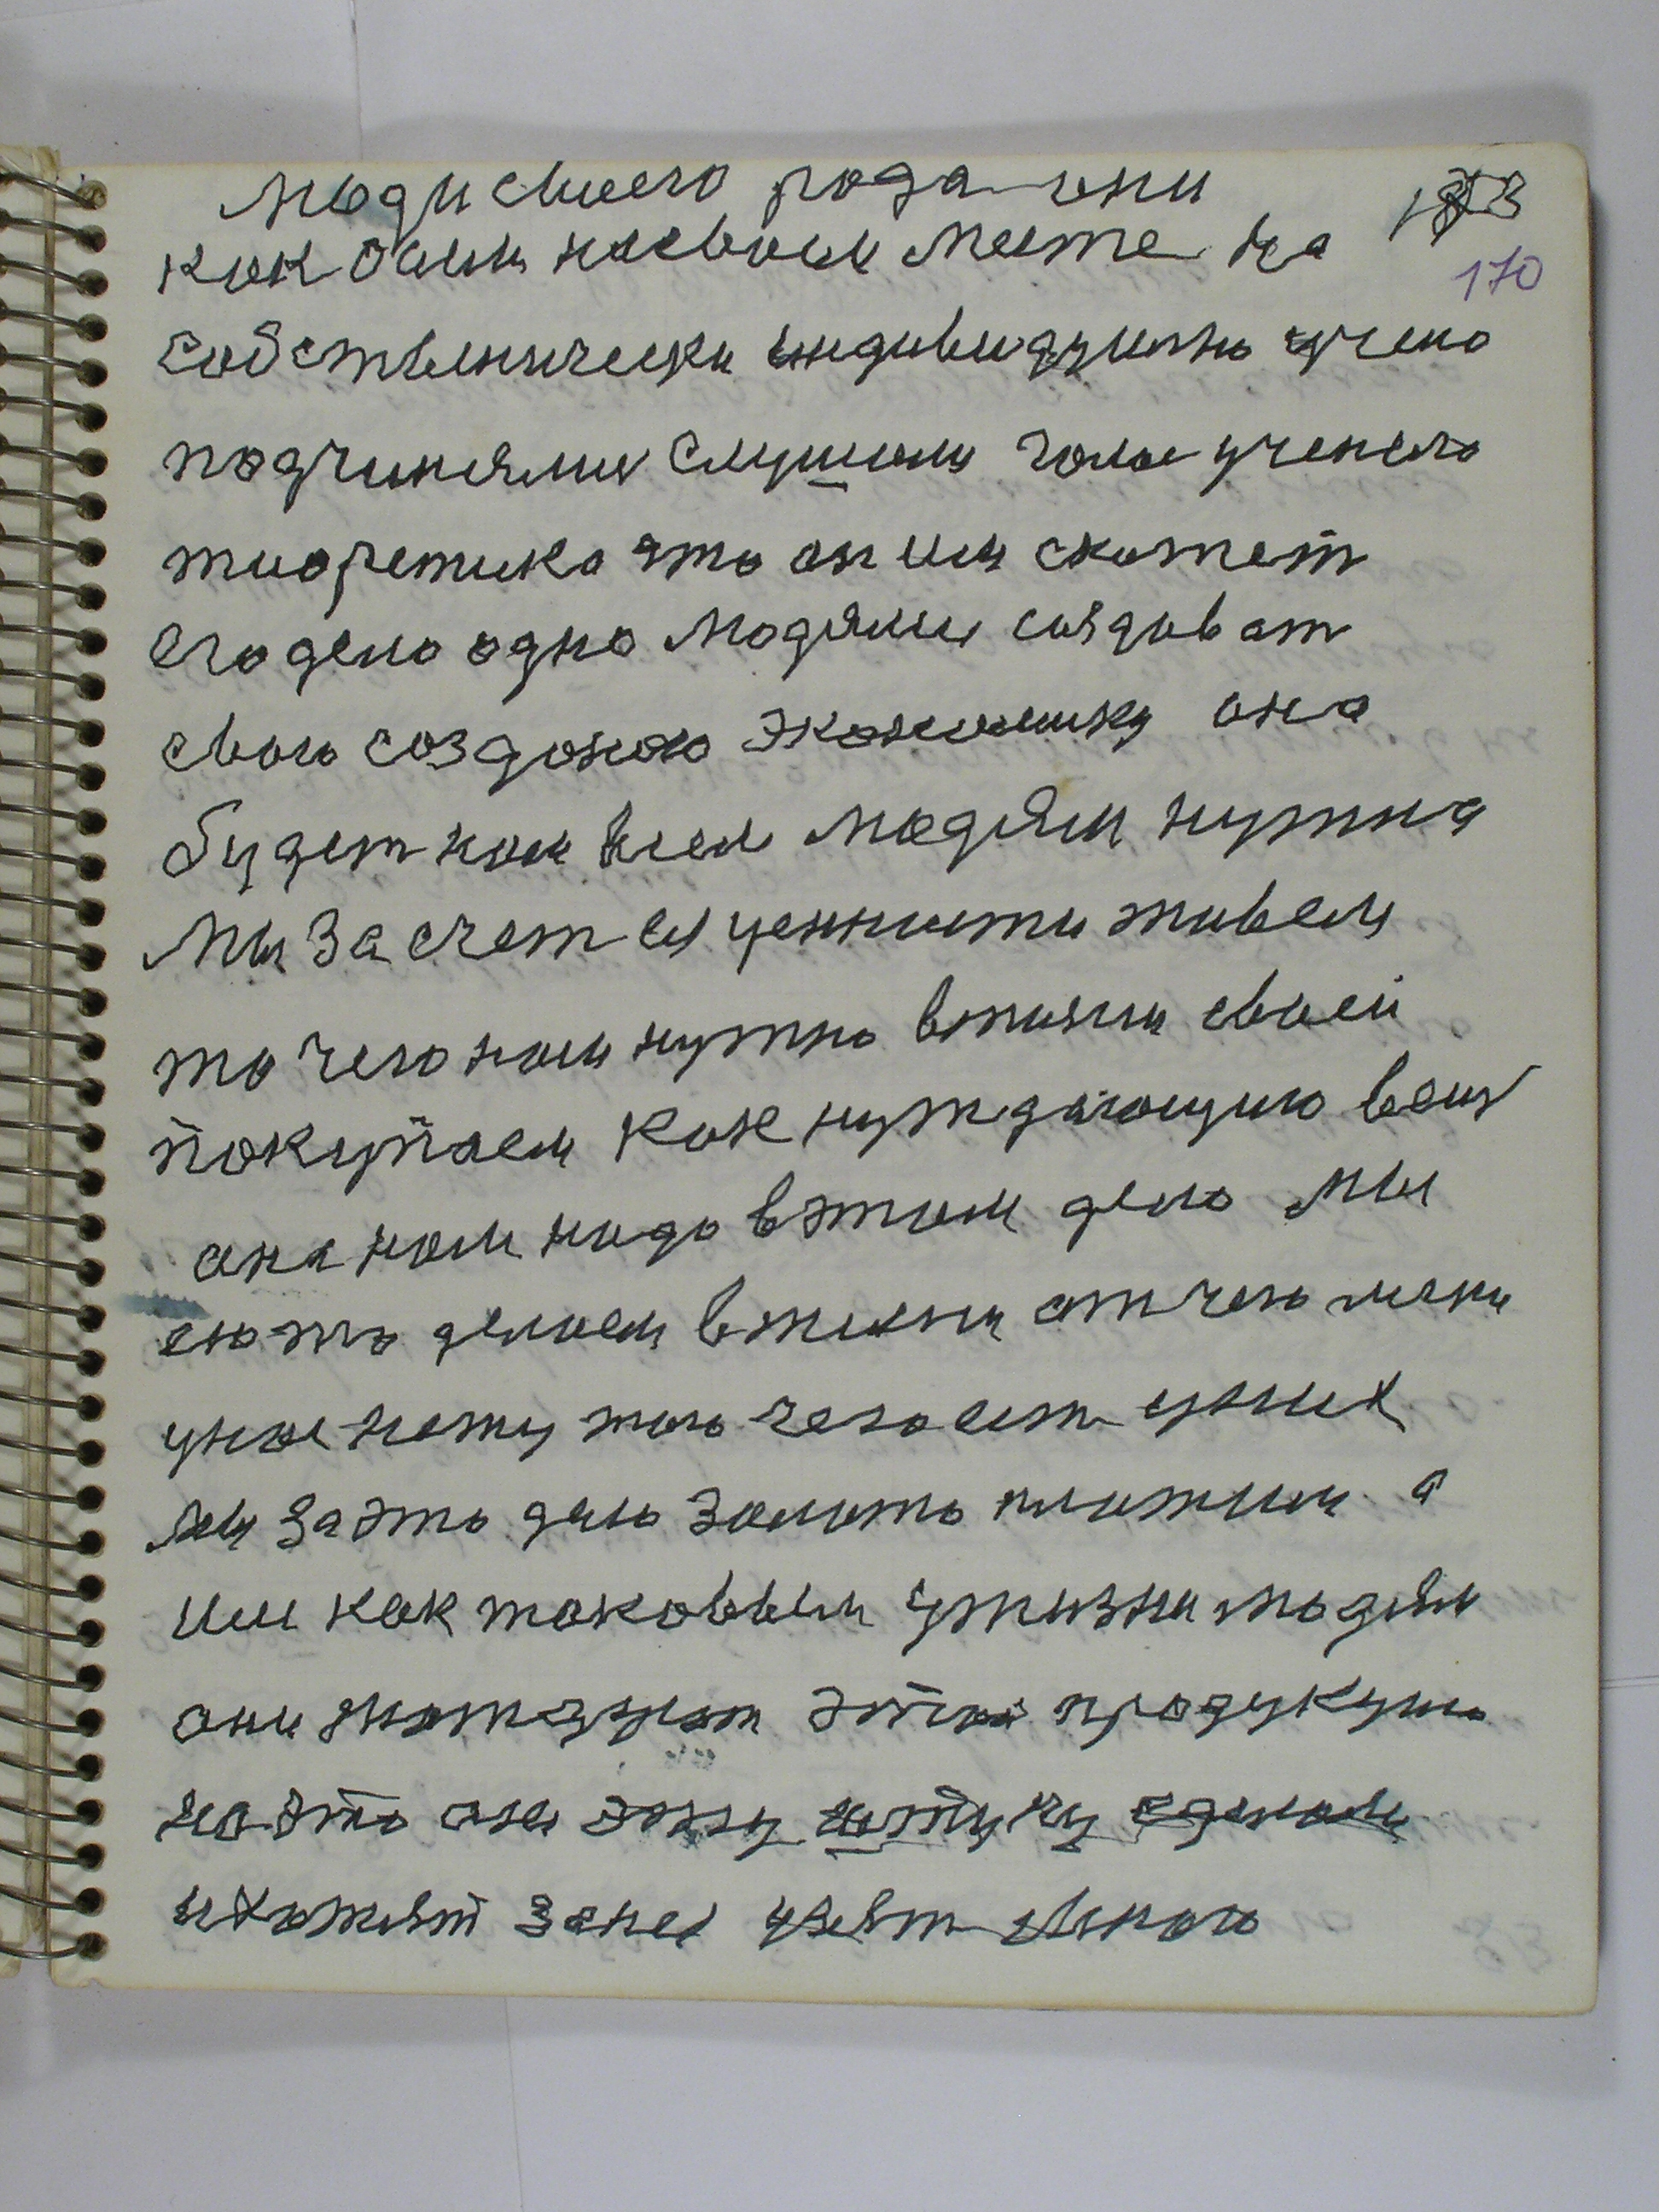 люди своего рода они
как были на своем месте на 173
170
собственически индивидуально учено
подчинялись слушали голос ученого
тиоретика что он им скажет
его дело одно людями создават
свою создоною экономику она
будет как всем людям нужна
мы за счет ея ценности живем
то чего нам нужно вжизни своей
покупаем как нуждающую вещ
она нам надо вэтом дело мы
ето делаем вжизни от чего
у нас нету того чего ест у них
мы за это дело золото платим а
им как таковым ужизни людям
они продукцию
на это они эту штуку сделали
и хотят за нея взят